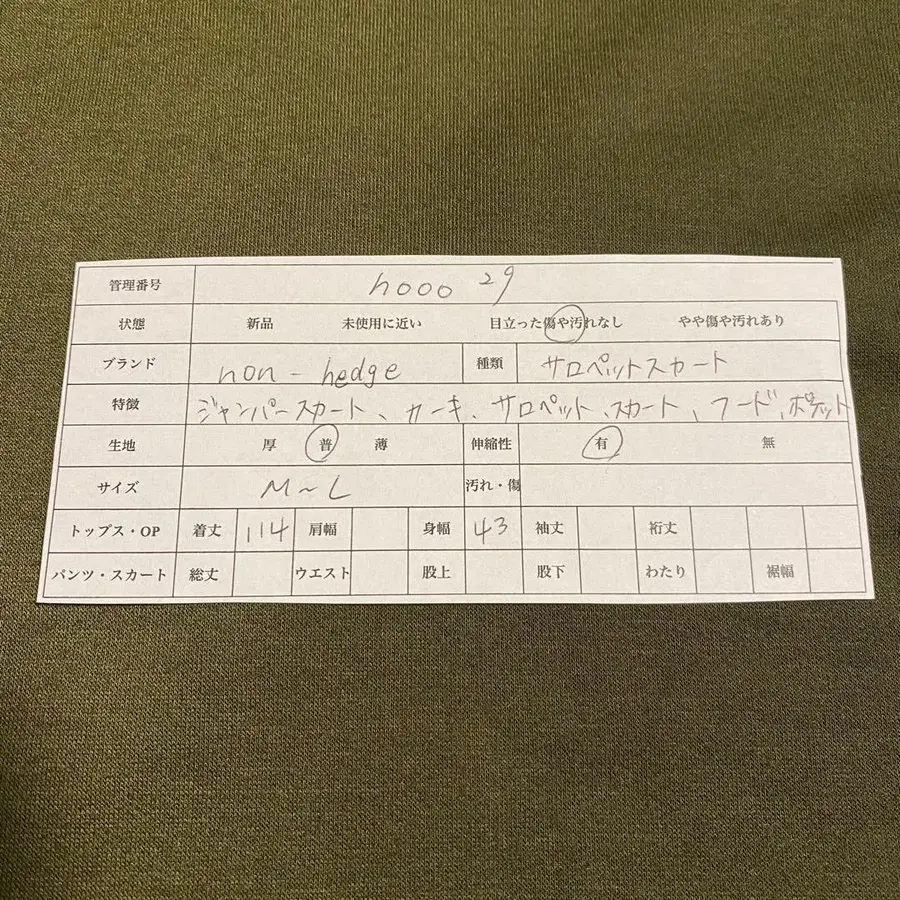 管理番号 h000 29
状態 新品 未使用に近い 目立った傷や汚れなし やや傷や汚れあり
ブランド non-hedge 種類 サロペットスカート
特徴 ジャンパースカート、カーキ、サロペット、スカート、フード、ポケット
生地 厚 普 薄 伸縮性 有 無
サイズ M～L 汚れ・傷
トップス・OP 着丈 114 肩幅 身幅 43 袖丈 裄丈
パンツ・スカート 総丈 ウエスト 股上 股下 わたり 裾幅